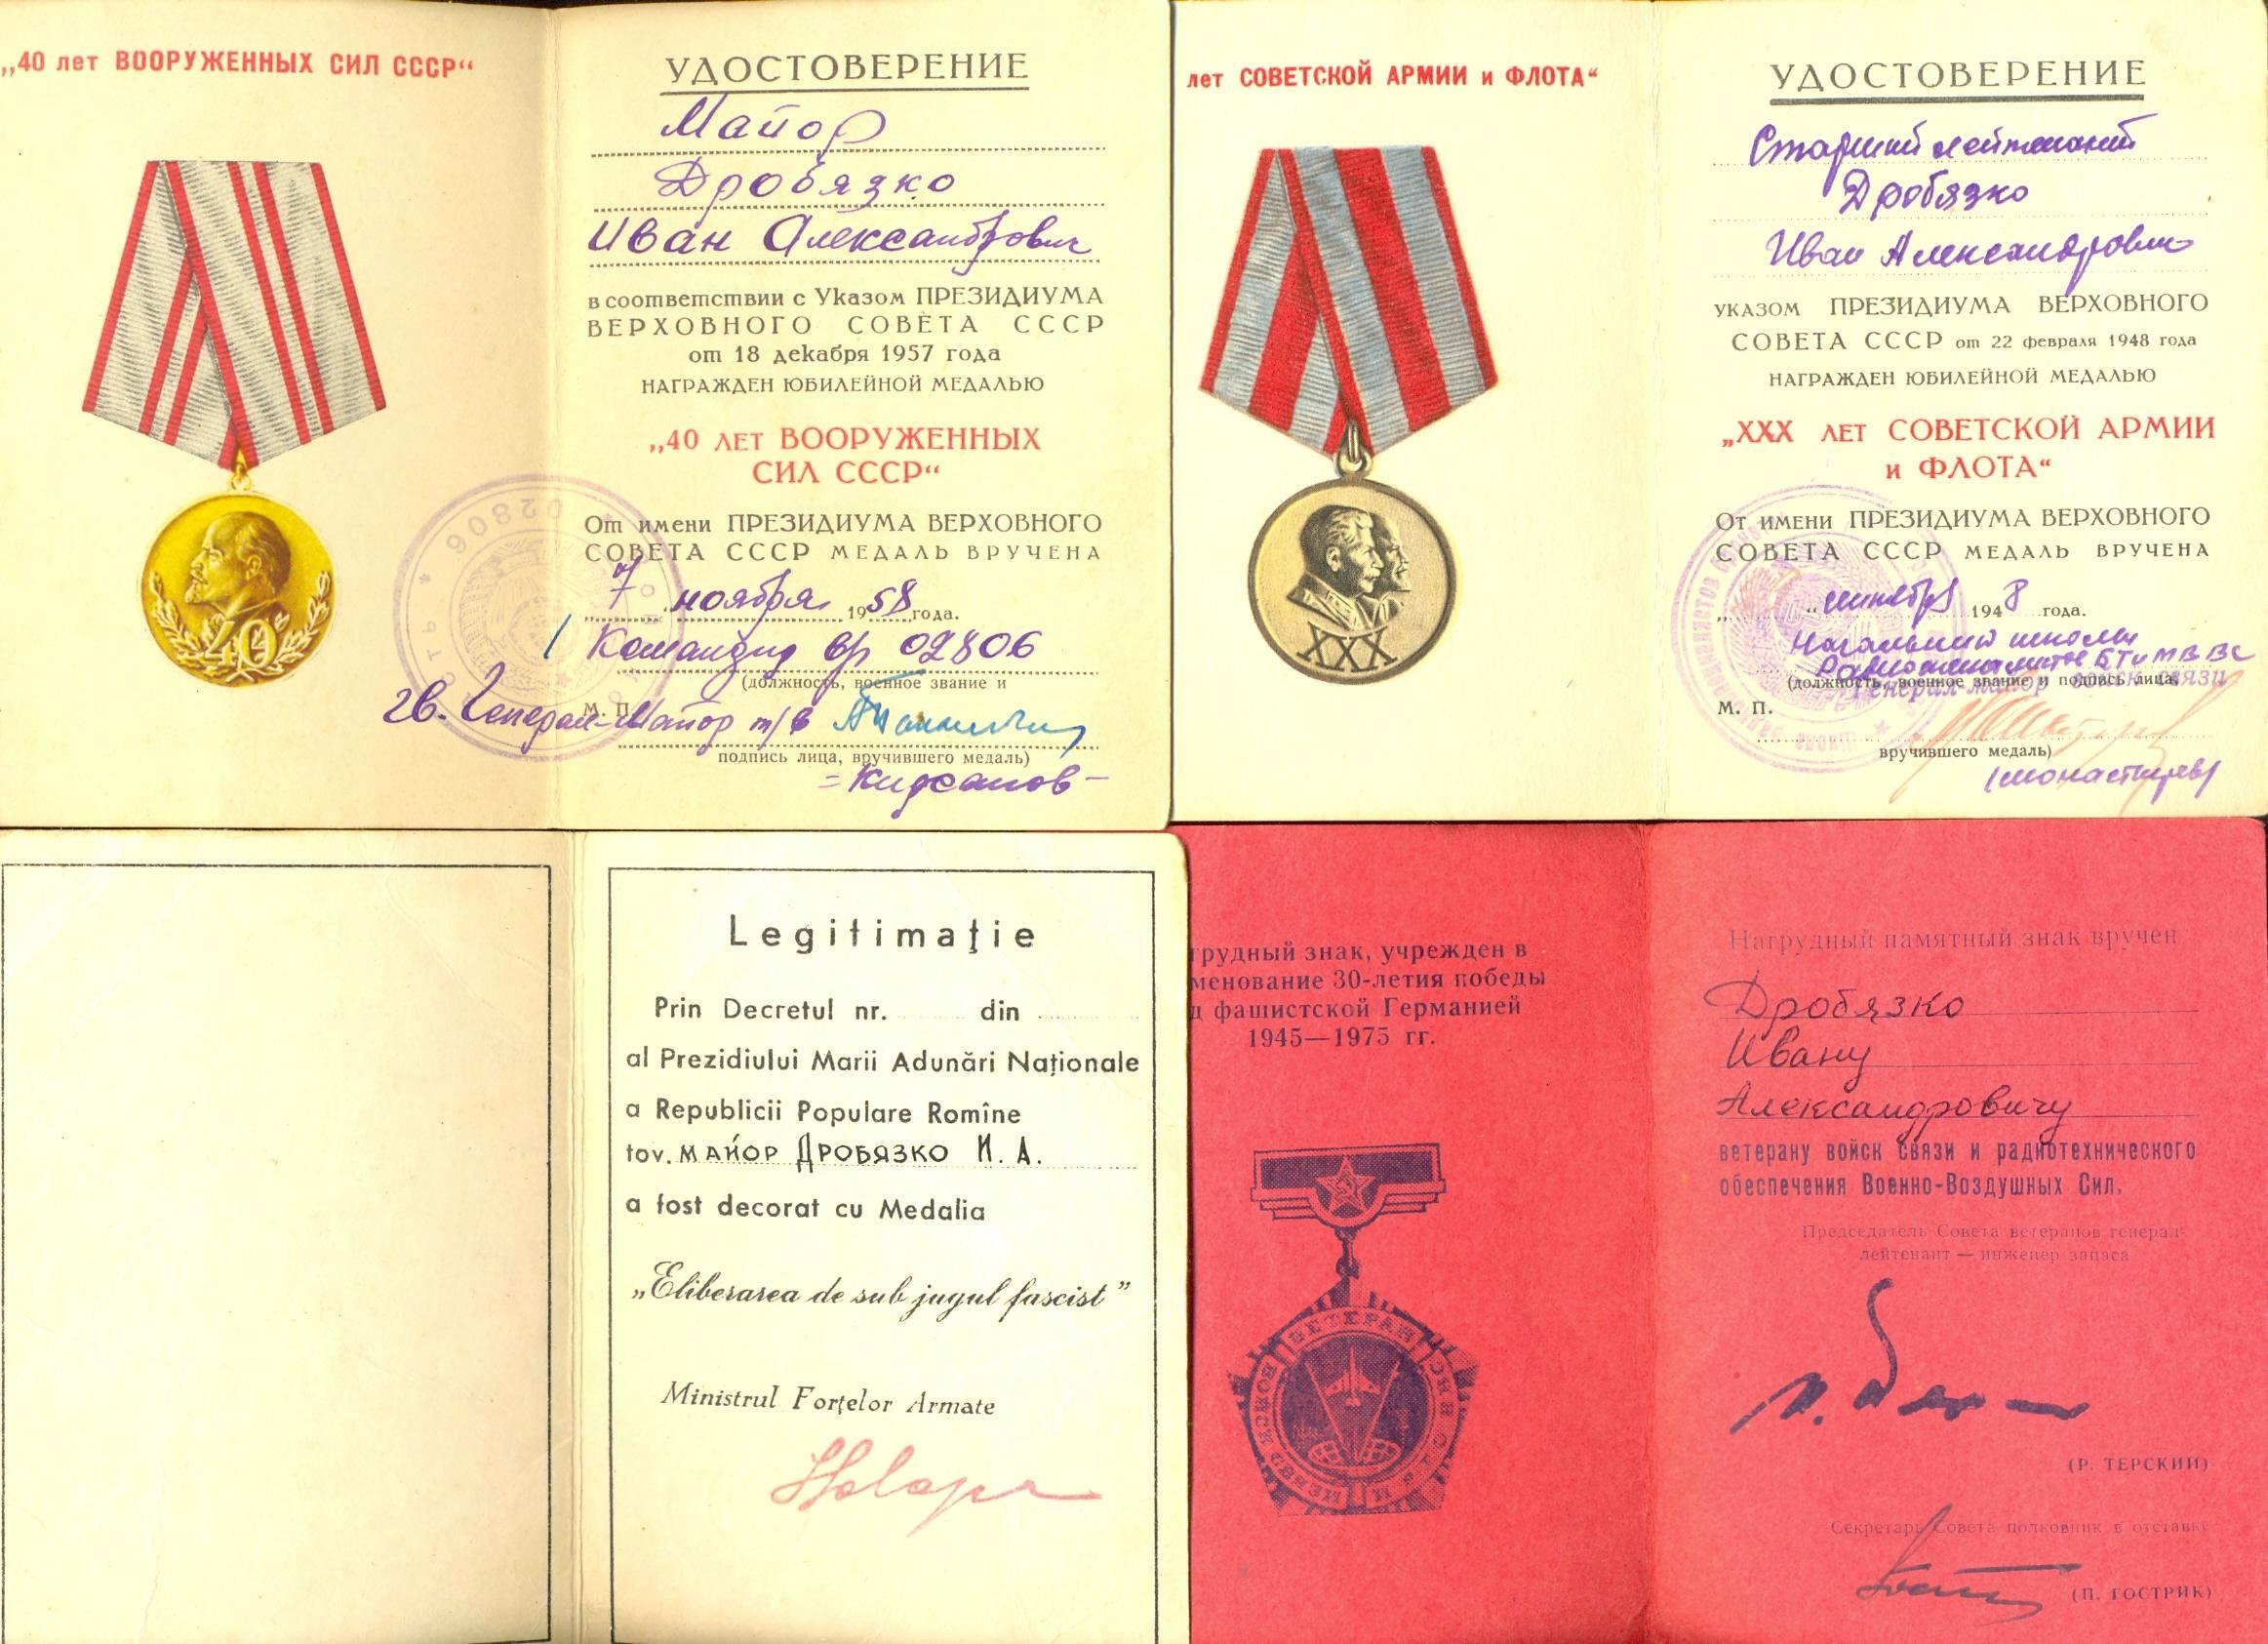 „40 лет ВООРУЖЕННЫХ СИЛ СССР“
УДОСТОВЕРЕНИЕ
Майор
Дробязко
Иван Александрович
в соответствии с Указом ПРЕЗИДИУМА
ВЕРХОВНОГО СОВЕТА СССР
от 18 декабря 1957 года
НАГРАЖДЕН ЮБИЛЕЙНОЙ МЕДАЛЬЮ
„40 ЛЕТ ВООРУЖЕННЫХ
СИЛ СССР“
От имени ПРЕЗИДИУМА ВЕРХОВНОГО
СОВЕТА СССР МЕДАЛЬ ВРУЧЕНА
„7 ноября 1958 года.
Командир в/ч 02806
(должность, военное звание и
М. П.
гв. Генерал-Майор т/в
подпись лица, вручившего медаль)
40
02806
лет СОВЕТСКОЙ АРМИИ и ФЛОТА“
XXX
УДОСТОВЕРЕНИЕ
Старший лейтенант
Дробязко
Иван Александрович
УКАЗОМ ПРЕЗИДИУМА ВЕРХОВНОГО
СОВЕТА СССР от 22 февраля 1948 года
НАГРАЖДЕН ЮБИЛЕЙНОЙ МЕДАЛЬЮ
„XXX ЛЕТ СОВЕТСКОЙ АРМИИ
и ФЛОТА“
От имени ПРЕЗИДИУМА ВЕРХОВНОГО
СОВЕТА СССР МЕДАЛЬ ВРУЧЕНА
„ сентября 1948 года.
Начальник школы
(должность, военное звание и подпись лица,
Генерал-майор войск связи
М. П.
вручившего медаль)
(Монастырев)
Legitimaţie
Prin Decretul nr. din
al Prezidiului Marii Adunări Naţionale
a Republicii Populare Romîne
tov. МАЙОР ДРОБЯЗКО И. А.
a fost decorat cu Medalia
„Eliberarea de sub jugul fascist”
Ministrul Forţelor Armate
грудный знак, учрежден в
менование 30-летия победы
д фашистской Германией
1945—1975 гг.
ВЕТЕРАН
ВОЙСК СВЯЗИ
Нагрудный памятный знак вручен
Дробязко
Ивану
Александровичу
ветерану войск связи и радиотехнического
обеспечения Военно-Воздушных Сил.
Председатель Совета ветеранов генерал-
лейтенант — инженер запаса
(Р. ТЕРСКИЙ)
Секретарь Совета полковник в отставке
(П. ГОСТРИК)